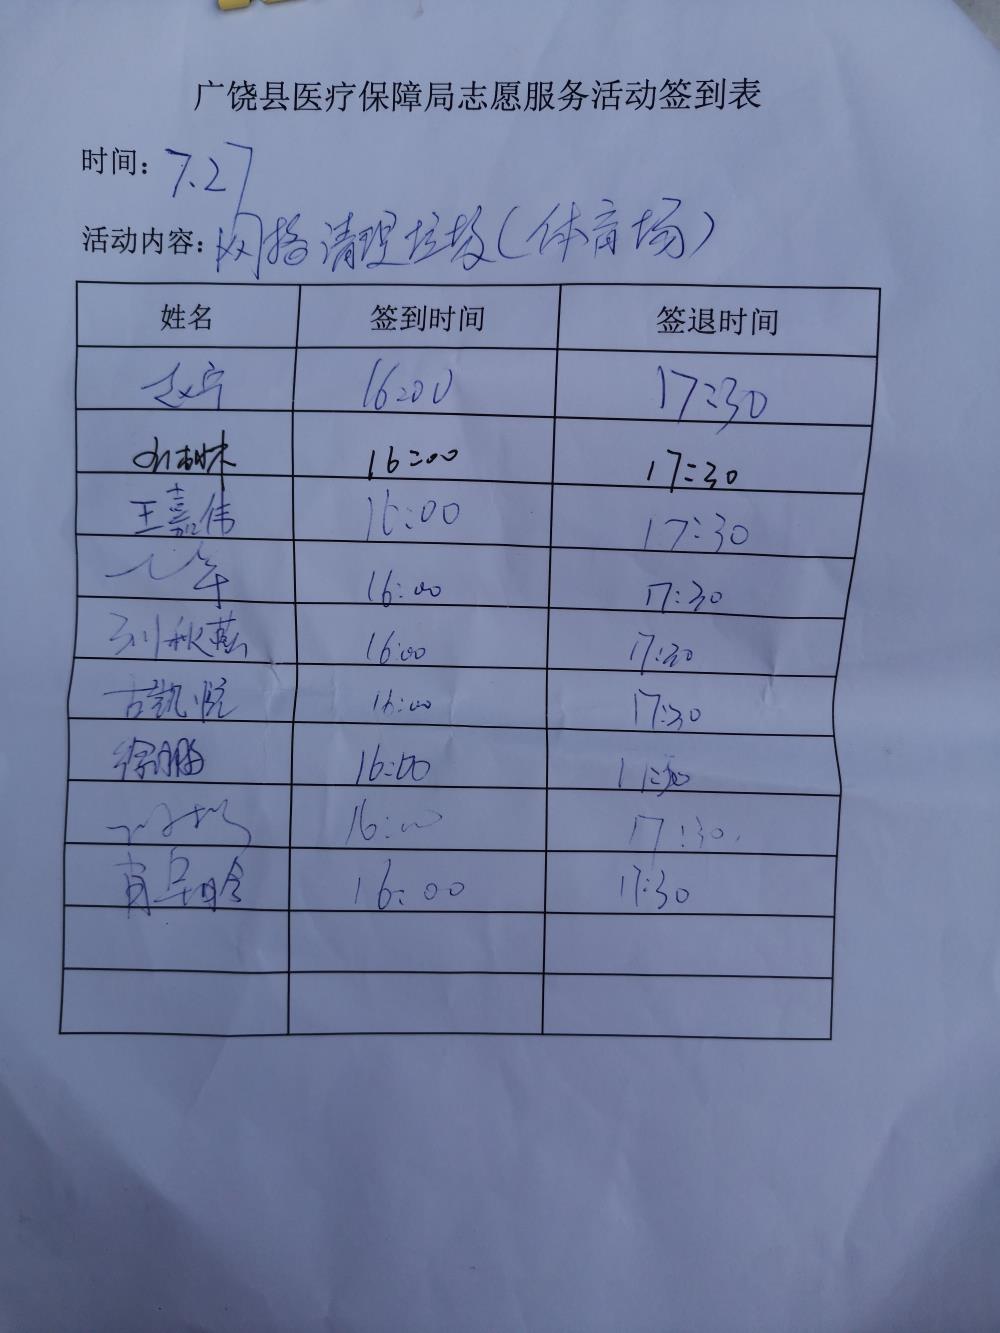 广饶县医疗保障局志愿服务活动签到表
时间：7.27
活动内容：网格清理垃圾（体育场）
姓名 签到时间 签退时间
赵宁 16:00 17:30
16:00 17:30
王嘉伟 16:00 17:30
16:00 17:30
刘秋燕 16:00 17:30
古凯悦 16:00 17:30
徐鹏 16:00
16:00 17:30.
16:00 17:30